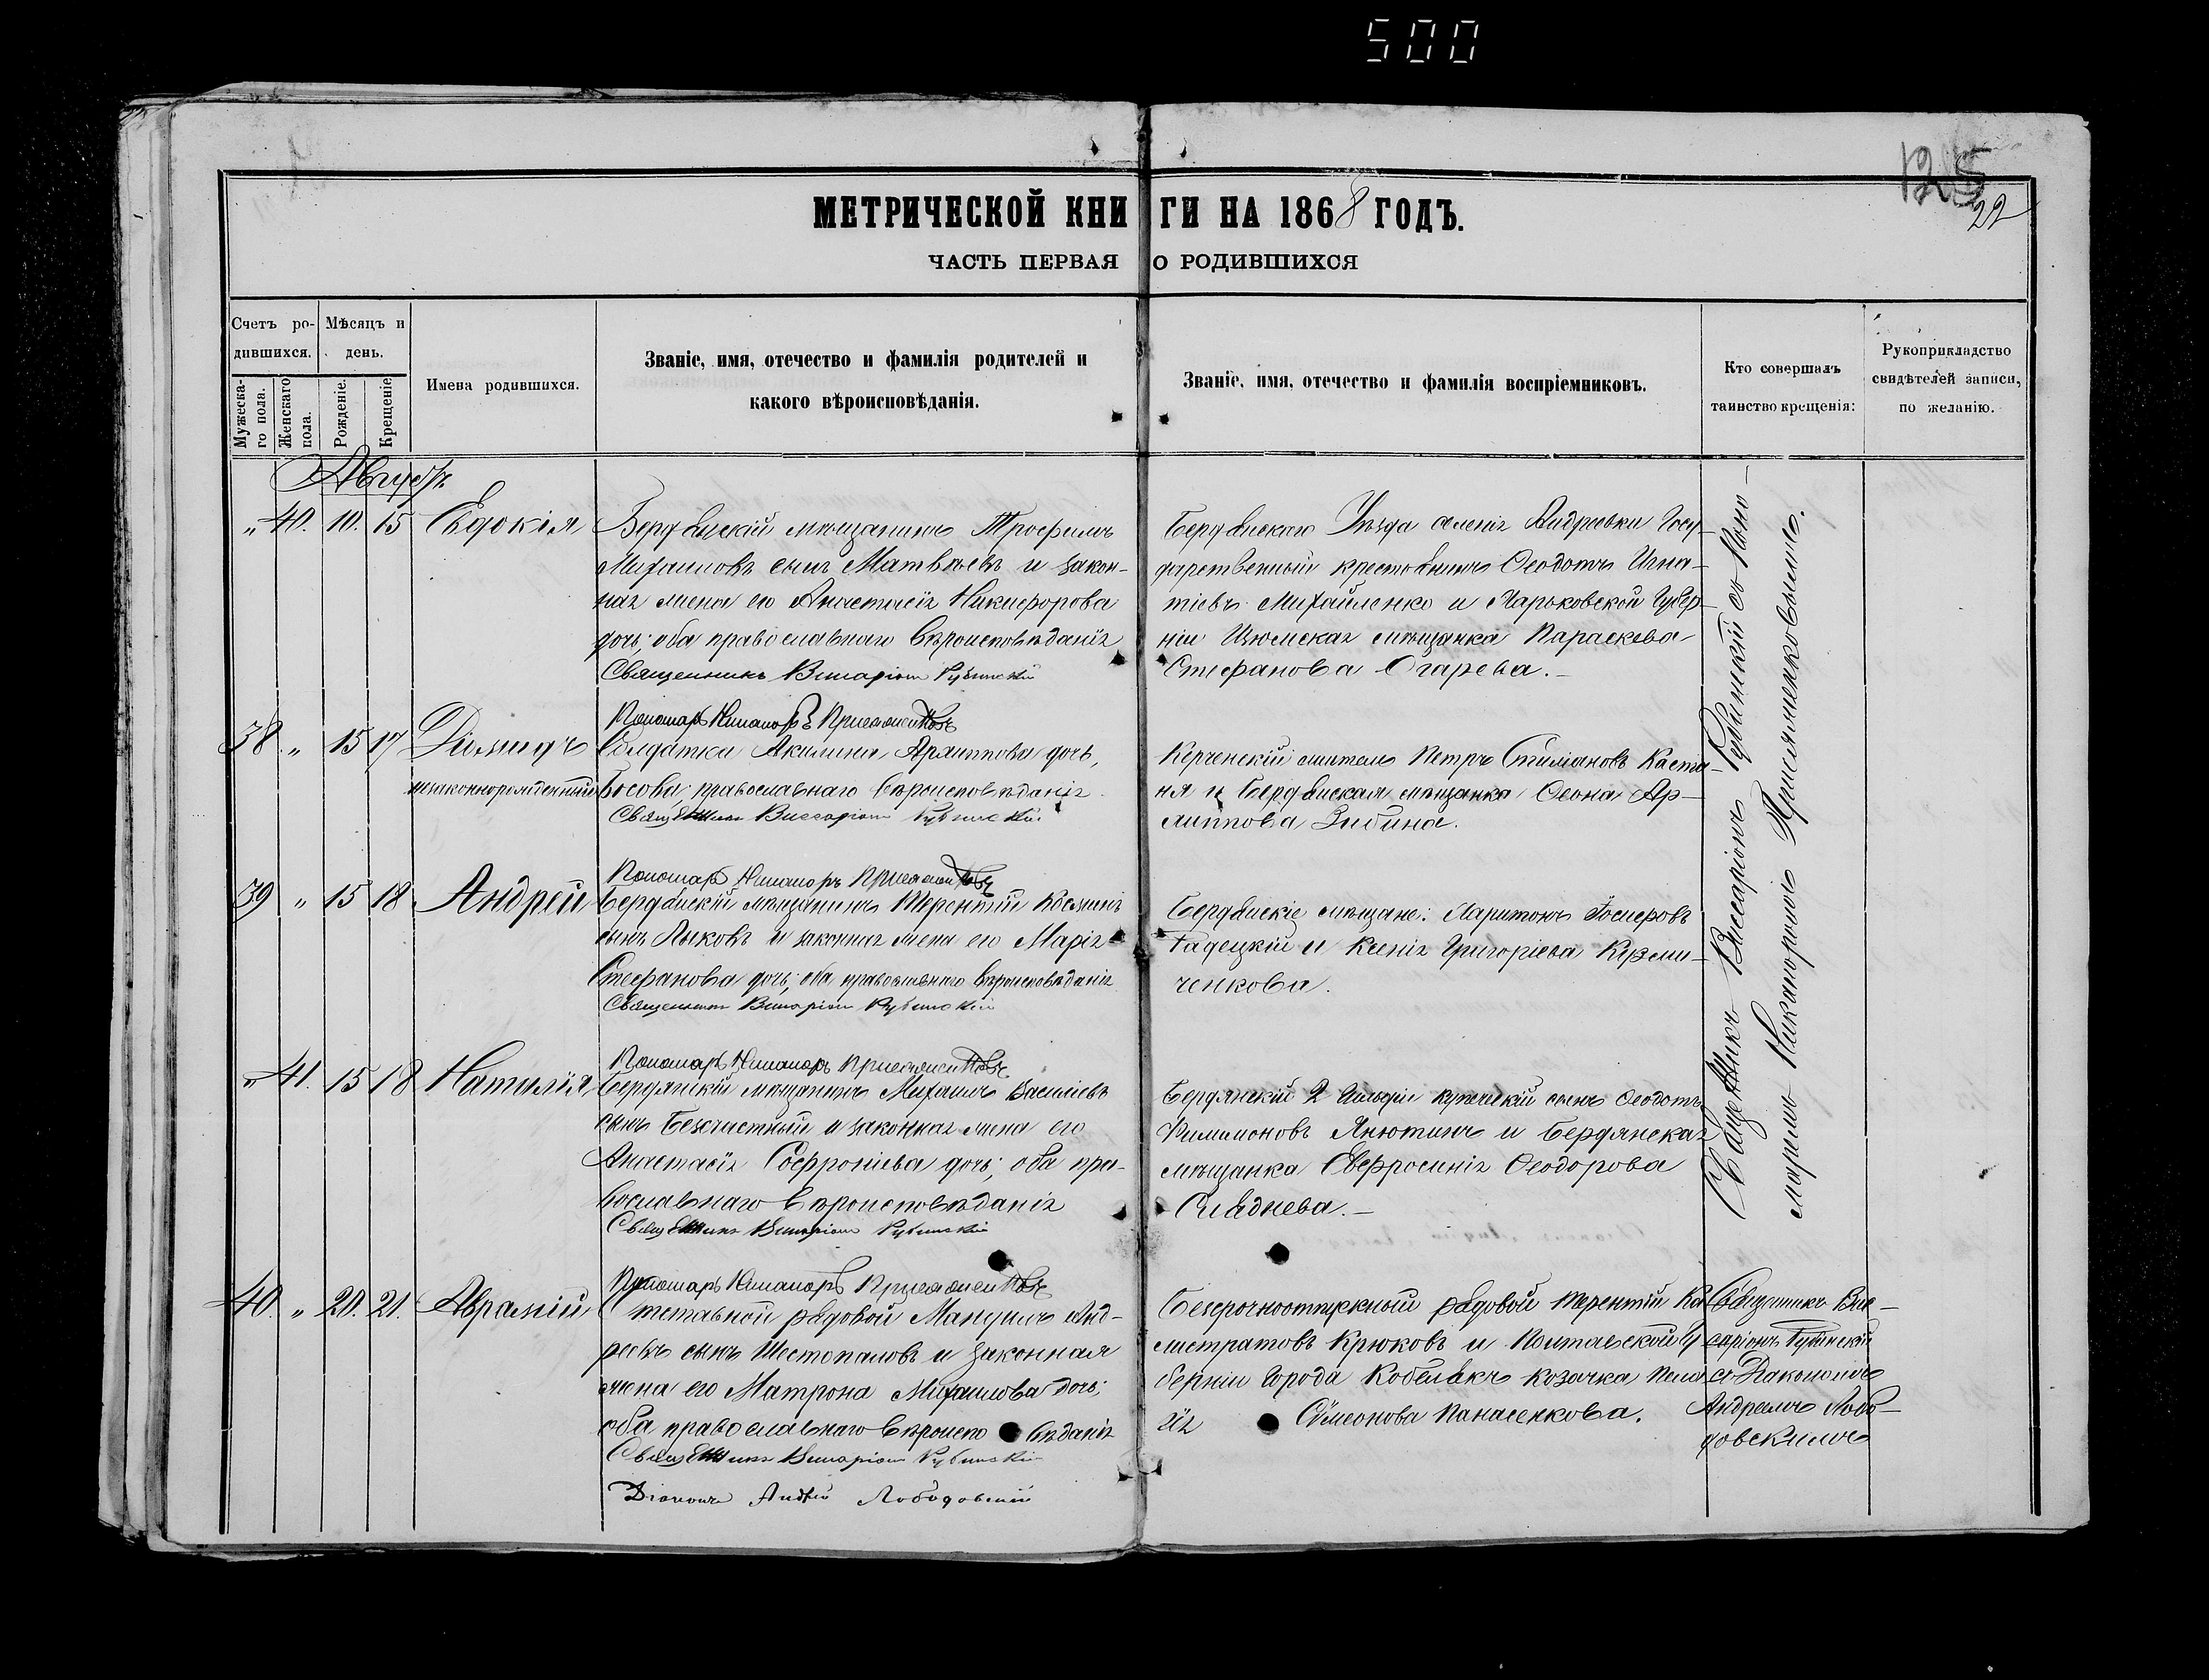 500
125
22
МЕТРИЧЕСКОЙ КНИГИ НА 1868 ГОДЪ.
ЧАСТЬ ПЕРВАЯ О РОДИВШИХСЯ
Счетъ родившихся.
Мужескаго пола.
Женскаго пола.
Мѣсяцъ и день.
Рожденіе.
Крещеніе
Имена родившихся.
Званіе, имя, отечество и фамилія родителей и
какого вѣроисповѣданія.
Званіе, имя, отечество и фамилія воспріемниковъ.
Кто совершалъ
таинство крещенія:
Рукоприкладство
свидѣтелей записи,
по желанію.
Августъ
„ 40. 10. 15 Евдокія
Бердянскій мѣщанинъ Трофимъ
Михаиловъ сынъ Матвѣевъ и закон-
ная жена его Анастасія Никифорова
дочь; оба православнаго вѣроисповѣданія
Священникъ Виссаріонъ
Пономарь Никаноръ
Бердянскаго Уѣзда селенія Андреевки Госу-
дарственный крестьянинъ Ѳеодотъ Игна-
тіевъ Михайленко и Харьковской Губер-
ніи Изюмская мѣщанка Параскева
Стефанова Огарева.
38 „ 15 17
незаконнорожденный
Солдатка Акилина дочь,
Босова; православнаго вѣроисповѣданія
Священникъ Виссаріонъ
Пономарь Никаноръ
Керченскій житель Петръ Каста-
ня и Бердянская мѣщанка
Зибина.
39 „ 15 18 Андрей
Бердянскій мѣщанинъ Терентій Косминъ
сынъ Лыковъ и законная жена его Марія
Стефанова дочь; оба православнаго вѣроисповѣданія
Священникъ Виссаріонъ
Пономарь Никаноръ
Бердянскіе мѣщане: Харитонъ
Гадецкій и Ксенія Григоріева Кузми-
ченкова.
„ 41. 15 18 Наталія
Бердянскій мѣщанинъ Михаилъ Василіевъ
сынъ Безчастный и законная жена его
Анастасія Софроніева дочь; оба пра-
вославнаго вѣроисповѣданія
Священникъ Виссаріонъ
Пономарь Никаноръ
Бердянскій 2 Гильдіи купеческій сынъ Ѳеодотъ
Филимоновъ Анютинъ и Бердянская
мѣщанка Евфросинія Ѳеодорова
Священникъ Виссаріонъ съ Поно-
маремъ Никаноромъ
40. „ 20. 21. Аврамій
рядовой Мануилъ Анд-
реевъ сынъ Шестопаловъ и законная
жена его Матрона Михаилова дочь;
оба православнаго вѣроисповѣданія
Священникъ Виссаріонъ
Діаконъ Андрей Лободовскій
Безсрочноотпускный рядовой Терентій Ка-
листратовъ Крюковъ и Полтавской Гу-
берніи города Кобелякъ козачка Пела-
гія Сѵмеонова Панасенкова.
Священникъ Вис-
саріонъ
съ Діакономъ
Андреемъ Лобо-
довскимъ